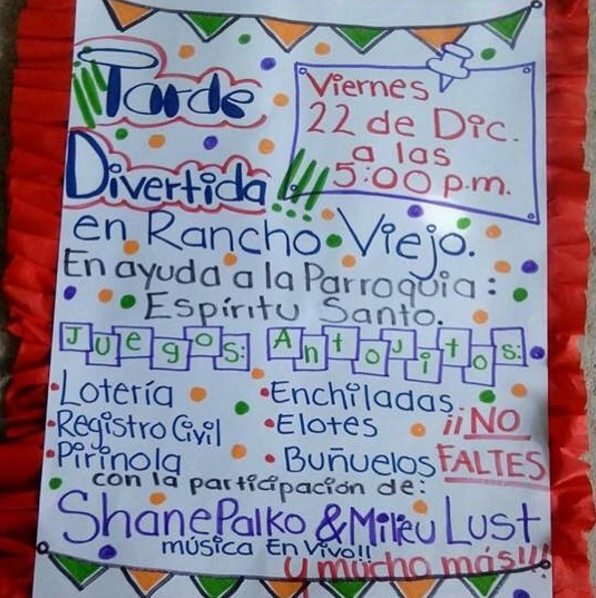 ¡¡¡Tarde
Divertida!!!
Viernes
22 de Dic.
a las
5:00 p.m.
en Rancho Viejo.
En ayuda a la Parroquia:
Espíritu Santo.
Juegos: Antojitos:
•Lotería •Enchiladas.
•Registro Civil •Elotes ¡¡NO
•Pirinola •Buñuelos FALTES
con la participación de:
Shane Palko & Milieu Lust
música En Vivo!!
y mucho más!!!